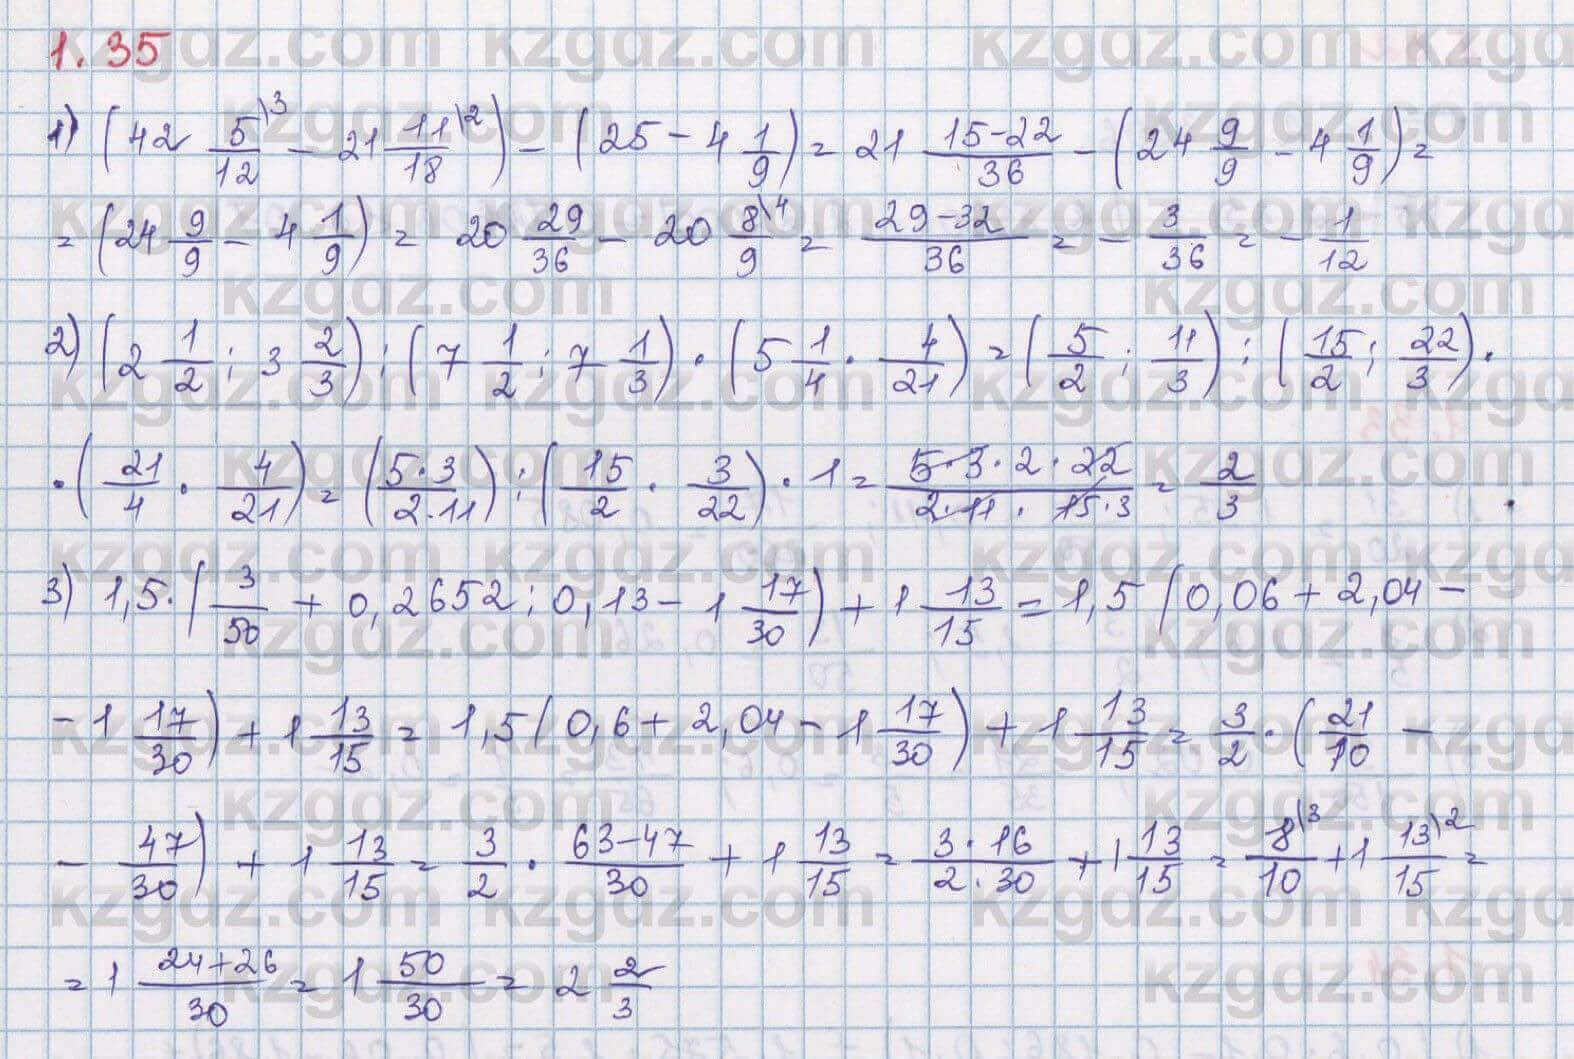 1.35
1) (42 5/12 \3 − 21 11/18 \2) − (25 − 4 1/9) = 21 15−22/36 − (24 9/9 − 4 1/9) =
= (24 9/9 − 4 1/9) = 20 29/36 − 20 8/9 \4 = 29−32/36 = − 3/36 = − 1/12
2) (2 1/2 : 3 2/3) : (7 1/2 : 7 1/3) · (5 1/4 · 4/21) = (5/2 : 11/3) : (15/2 : 22/3) ·
· (21/4 · 4/21) = (5·3/2·11) : (15/2 · 3/22) · 1 = 5·3·2·22/2·11·15·3 = 2/3
3) 1,5 · (3/50 + 0,2652 : 0,13 − 1 17/30) + 1 13/15 = 1,5 (0,06 + 2,04 −
− 1 17/30) + 1 13/15 = 1,5 (0,6 + 2,04 − 1 17/30) + 1 13/15 = 3/2 · (21/10 −
− 47/30) + 1 13/15 = 3/2 · 63−47/30 + 1 13/15 = 3·16/2·30 + 1 13/15 = 8/10 \3 + 1 13/15 \2 =
= 1 24+26/30 = 1 50/30 = 2 2/3